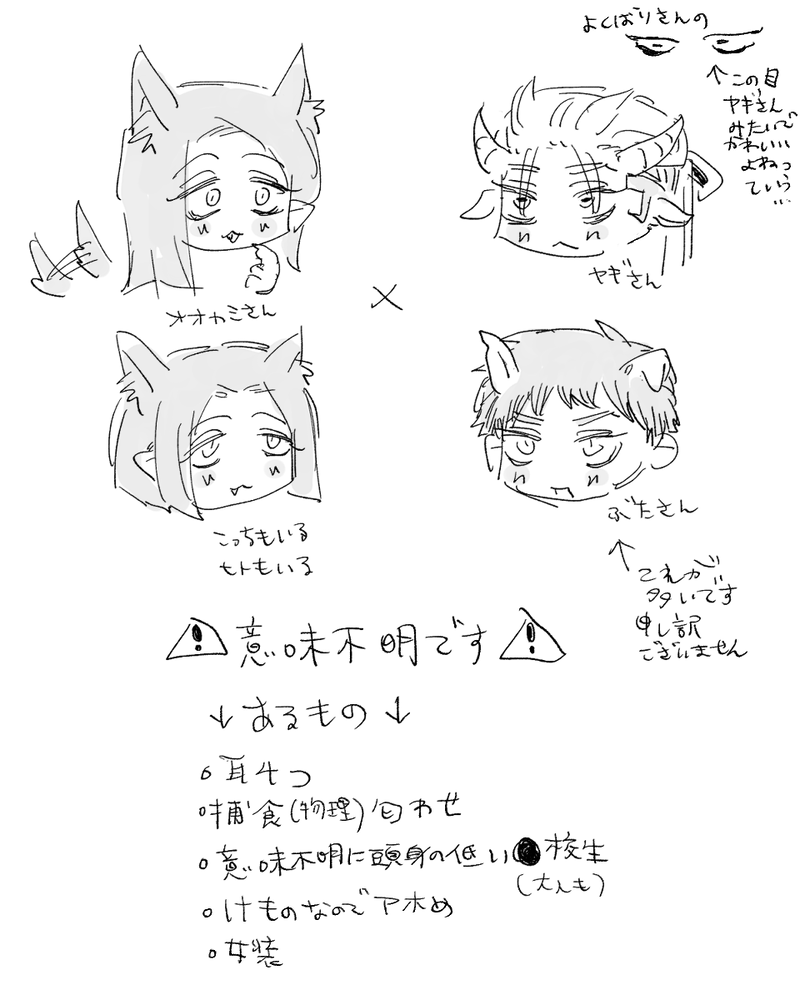 よくばりさんの
↑この目
ヤギさん
みたいで
かわいい
よねっ
ていう
…
オオカミさん
×
ヤギさん
こっちもいる
モトもいる
ぶたさん
↑
これが
多いです
申し訳
ございません
⚠意味不明です⚠
↓あるもの↓
○耳4つ
○捕食(物理)匂わせ
○意味不明に頭身の低い●校生
(大人も)
○けものなのでアホめ
○女装